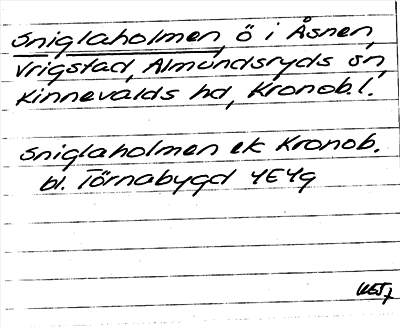 Sniglaholmen, ö i Åsnen,
Vrigstad, Almundsryds sn,
Kinnevalds hd, Kronob.l.
Sniglaholmen ek Kronob.
bl. Törnabygd 4E4g